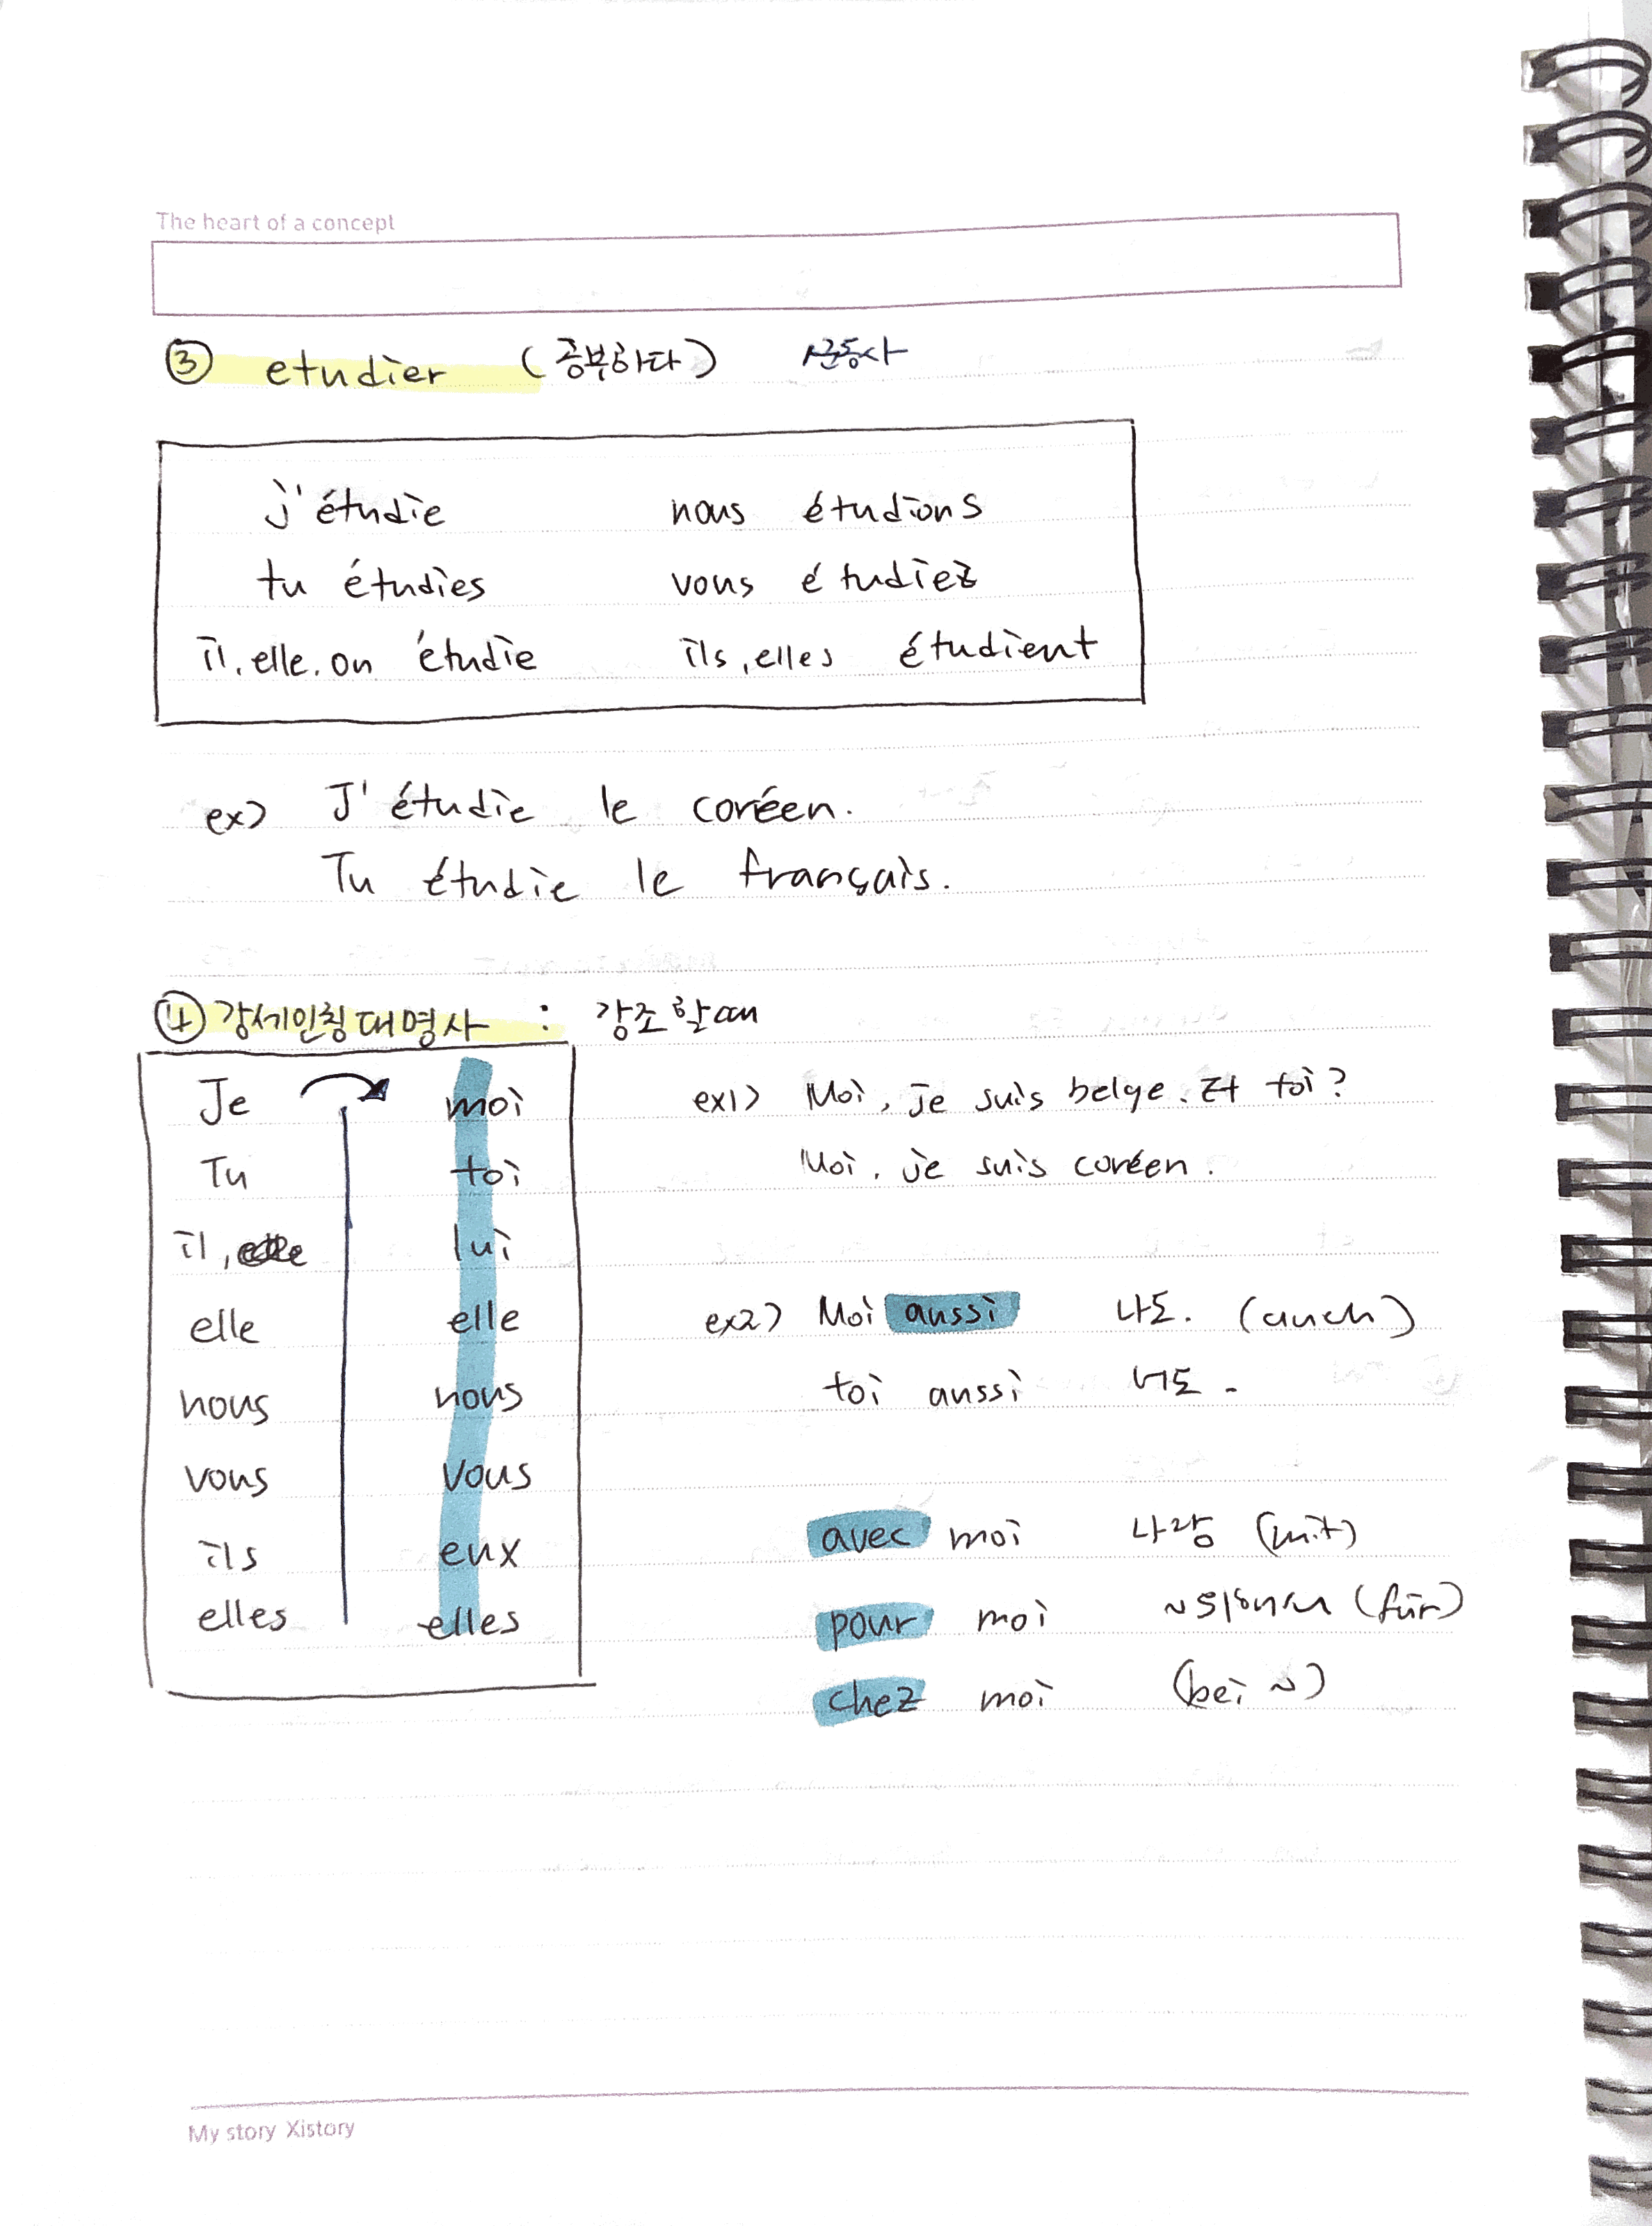 The heart of a concept
③ etudier (공부하다)
j'étudie nous étudions
tu étudies vous étudiez
il, elle, on étudie ils, elles étudient
ex) J'étudie le coréen.
Tu étudie le français.
④ 강세인칭대명사 : 강조할때
Je moi
Tu toi
il, lui
elle elle
nous nous
vous vous
ils eux
elles elles
ex1) Moi, je suis belge. Et toi?
Moi, je suis coréen.
ex2) Moi aussi 나도. (auch)
toi aussi 너도.
avec moi 나랑 (mit)
pour moi ~를위해서 (für)
chez moi (bei ~)
My story Xistory